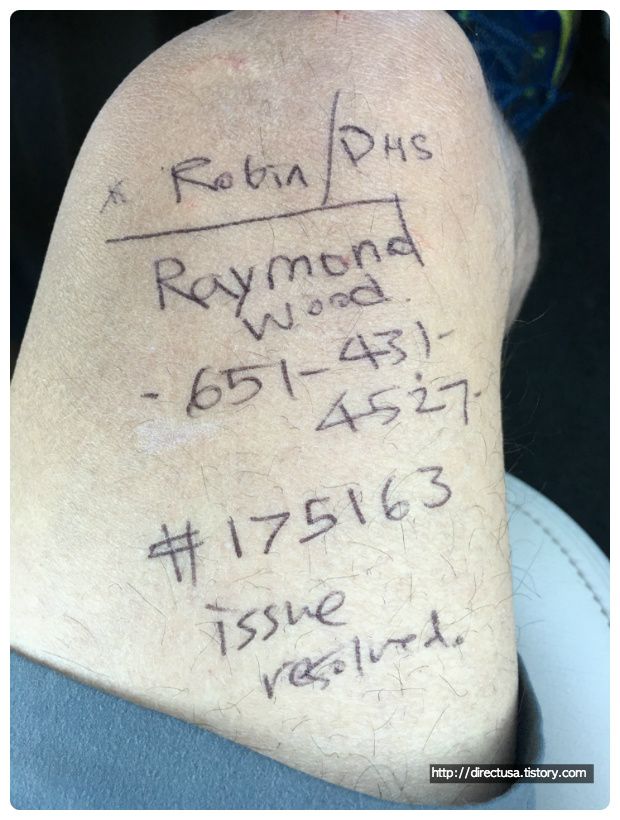 * Robin/DHS
Raymond
Wood.
- 651-431-
4527-
#175163
issue
resolved.
http://directusa.tistory.com